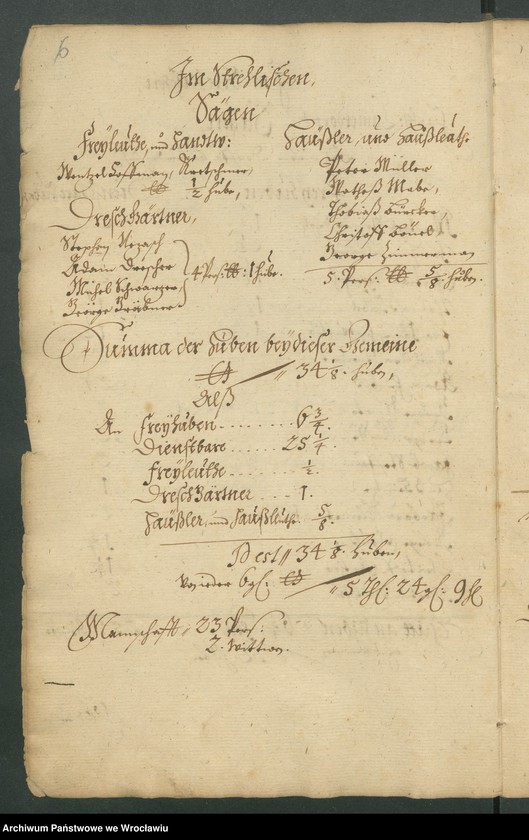 6
Im Strehlischen,
Sägen
Freyleüthe, und Handtw:
Wentzel Hoffman, Kretschmer,
½ Hube,
Dreschgärtner,
Stephen
Adam Drescher
Michel Schwarzer
George
4 Pers: 1 Hube.
Häußler, und Haußleüthe
Peter Müller
Matheß Mabe,
Thobiaß Burcker,
Christoff
George Zimmerman
5. Pers: 5/8 Huben.
Summa der Huben bey dieser Gemeine
" 34 1/8. Huben,
Alß
An Freyhuben . . . . . . . . 6 3/4.
Dienstbare . . . . . . 25 1/4.
Freyleüthe . . . . . . . ½.
Dreschgärtner . . . . 1.
Häußler, und Haußleüthe. 5/8.
34 1/8. Huben,
" 5 Thl: 24 gl: 9 hl
Mannschafft: 23 Pers:
2. Wittwen.
Archiwum Państwowe we Wrocławiu